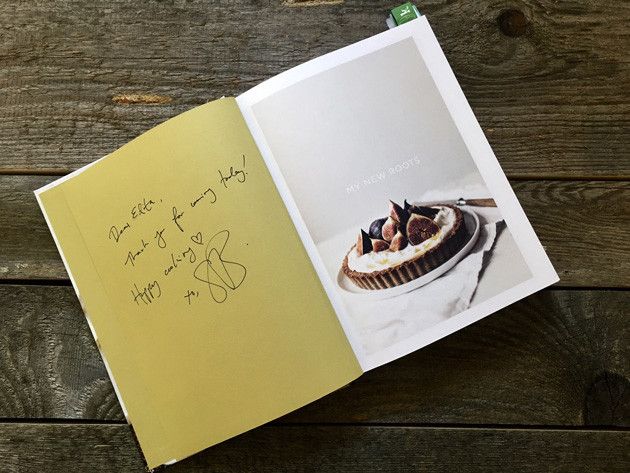 Dear Elta,
Thank you for coming today!
Happy cooking ♡
xo, SB.
MY NEW ROOTS